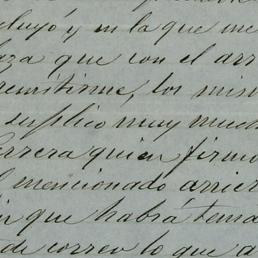 cluyó y en la que me
aza que con el arr
remitirme, los mis
suplico muy much
errera quien firmo
l mencionado arrier
in que habrá tenid
de correo lo que a